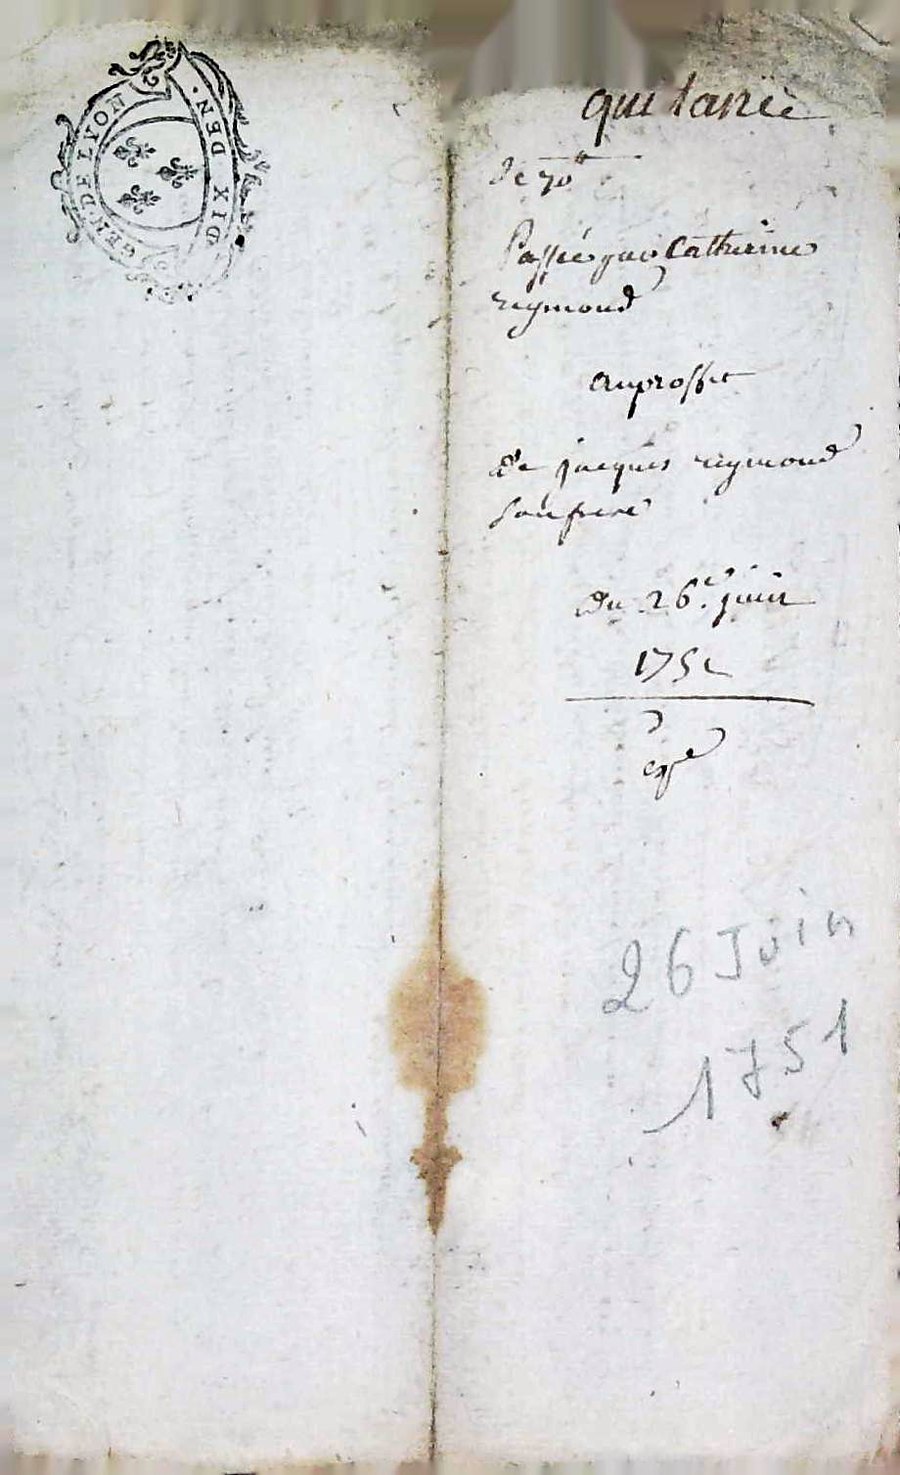 GEN. DE LYON
DIX DEN.
quitance
de 70
Passée par Catherine
reymond
au proffit
de jacques reymond
son frere
du 26e juin
175
26 Juin
1751